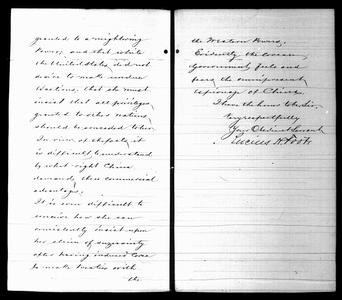 granted to a neighboring
Power, and that while
the United States did not
desire to make undue
exactions, that she must
insist that all privileges
granted to other nations
should be conceded to her.
In view of these facts, it
is difficult to understand
by what right China
demands these commercial
advantages.
It is also difficult to
conceive how she can
consistently insist upon
her claim of suzerainty
after having induced Corea
to make treaties with
the
the Western Powers.
Evidently the Corean
Government feels and
fears the omnipresent
espionage of China.
I have the honor to be, Sir,
Very respectfully
Your Obedient Servant
Lucius H. Foote